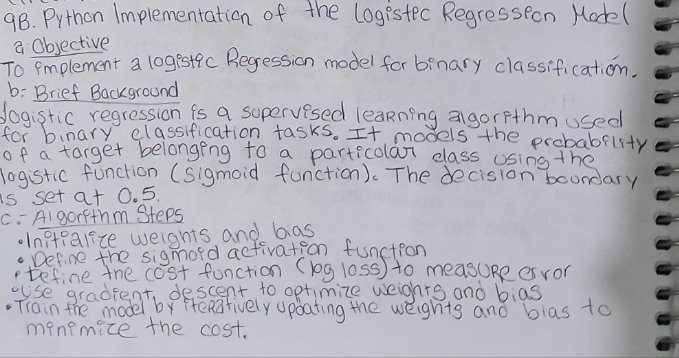 9B. Python Implementation of the Logistic Regression Model
a Objective
To implement a logistic Regression model for binary classification.
b: Brief Background
Logistic regression is a supervised learning algorithm used
for binary classification tasks. It models the probability
of a target belonging to a particular class using the
logistic function (sigmoid function). The decision boundary
is set at 0.5.
c:- Algorithm Steps
• Initialize weights and bias
• Define the sigmoid activation function
• Define the cost function (log loss) to measure error
• Use gradient descent to optimize weights and bias
• Train the model by iteratively updating the weights and bias to
minimize the cost.